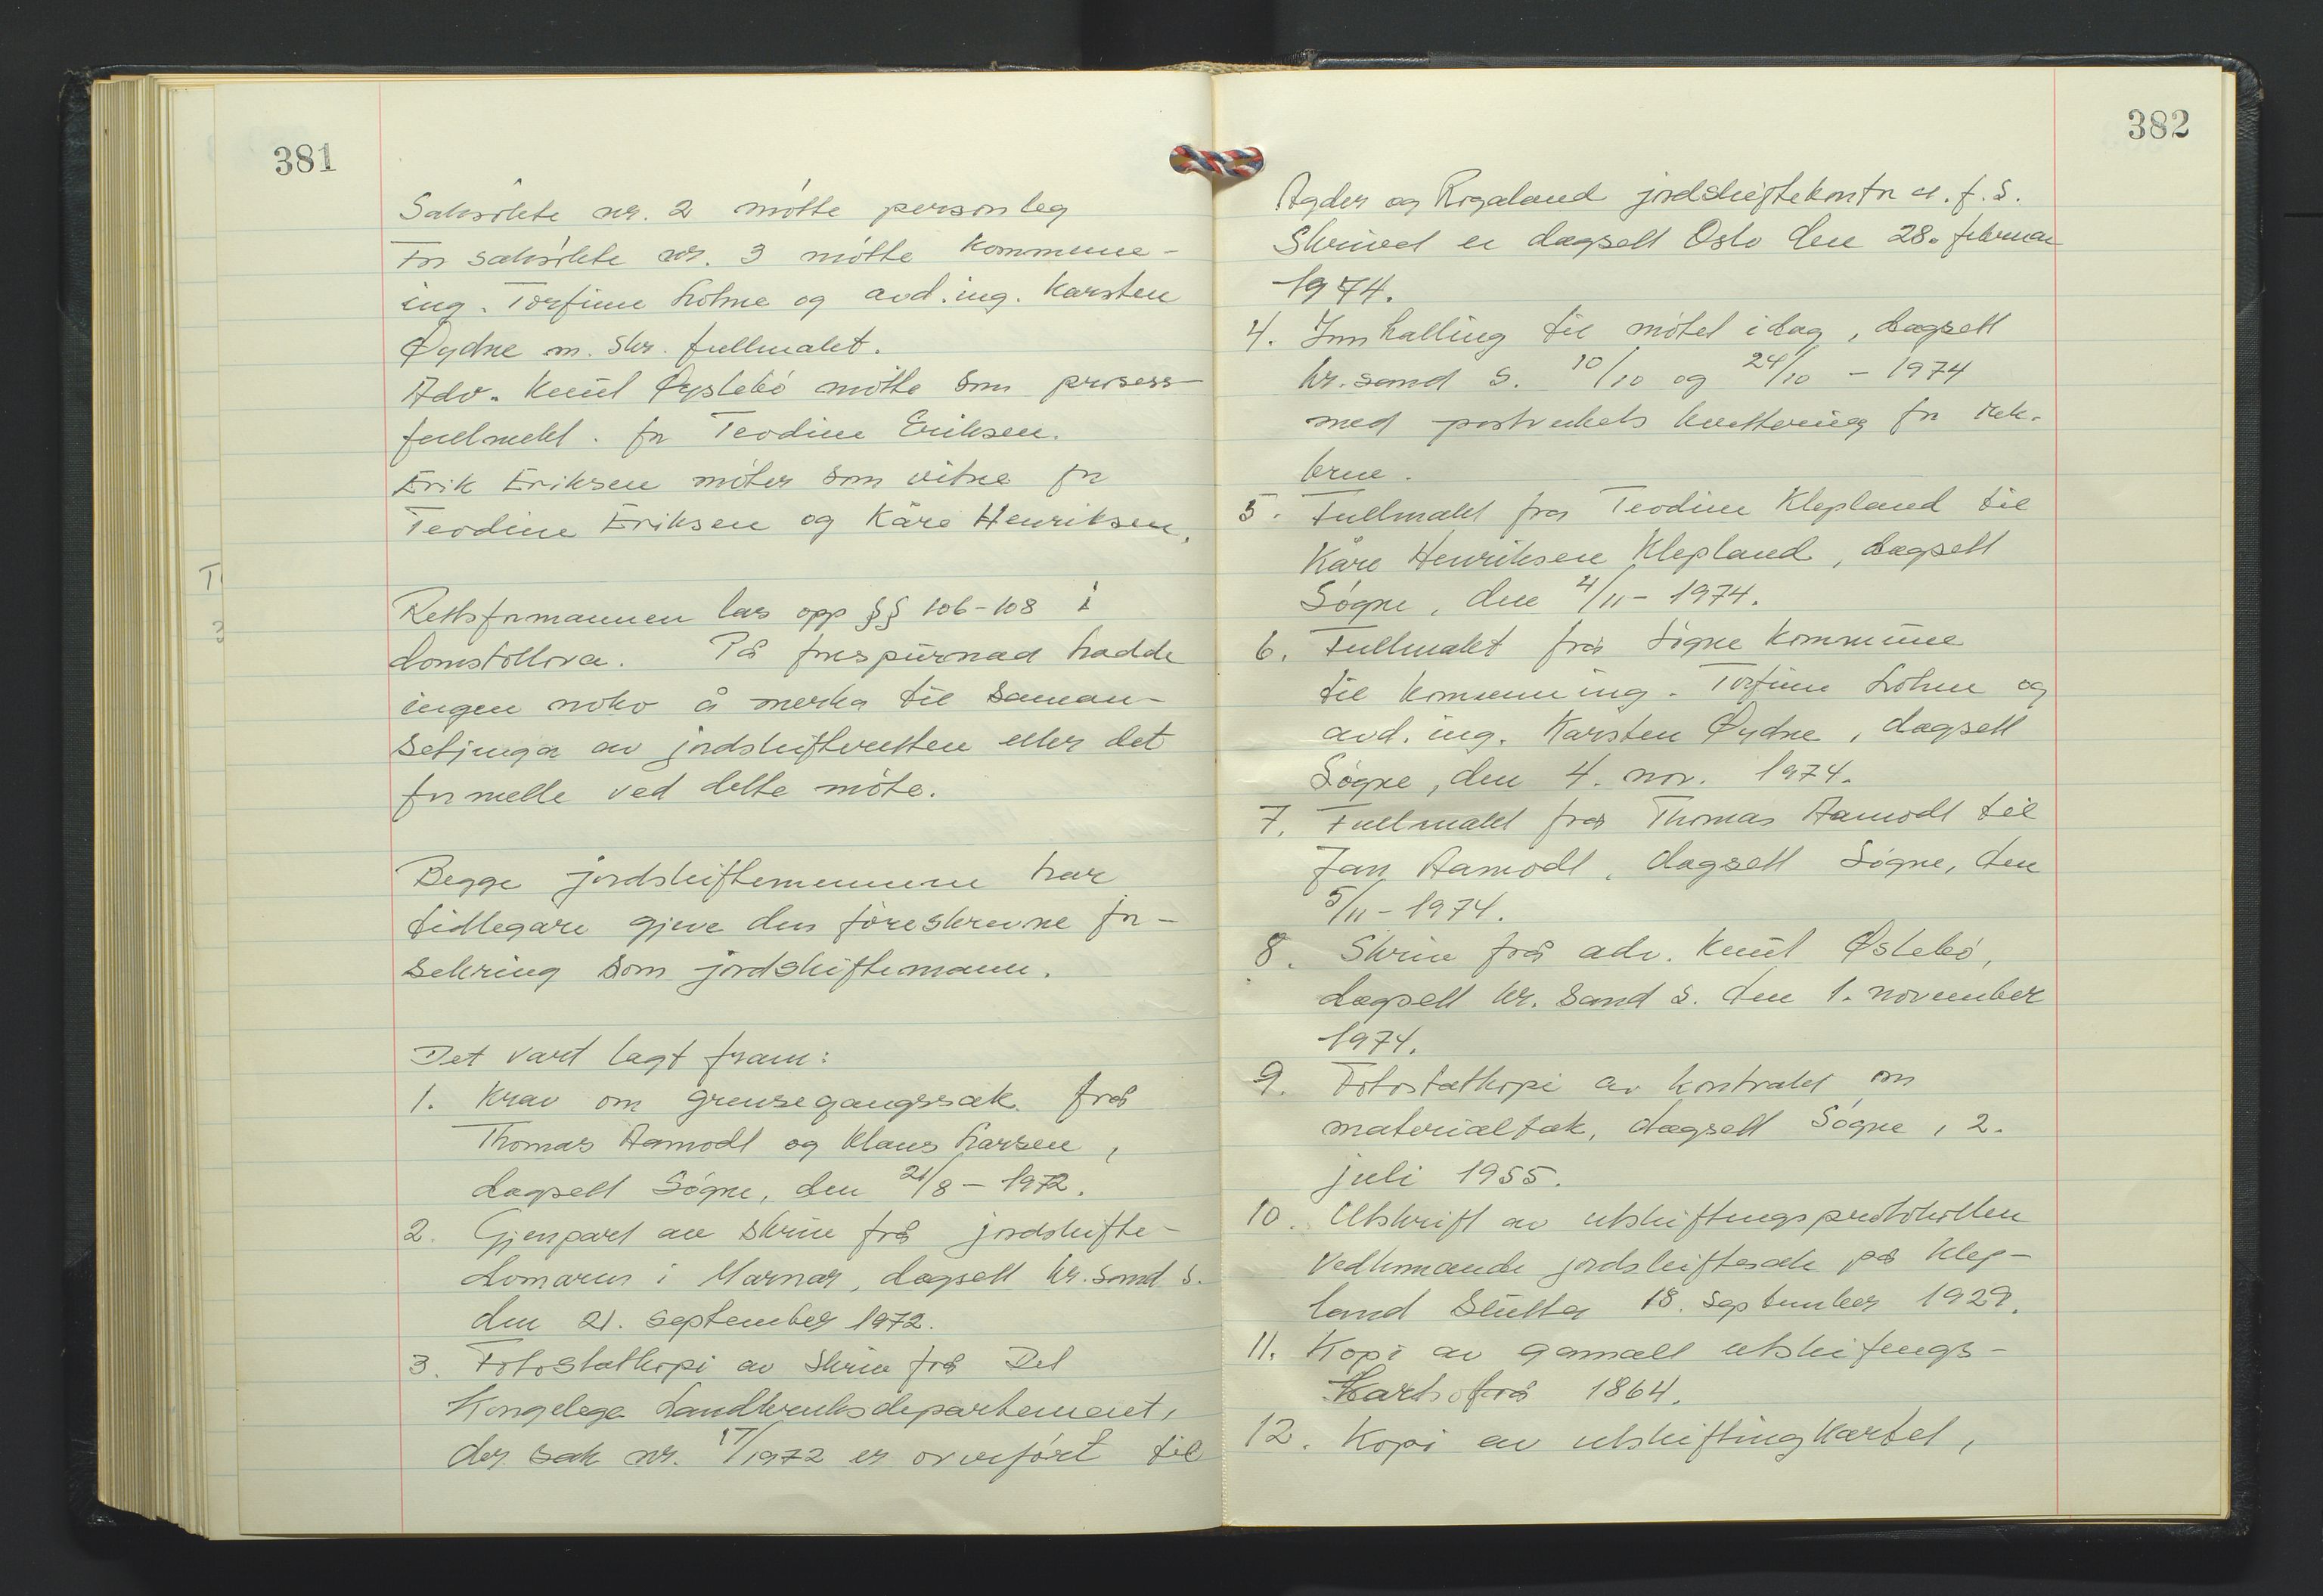 381
Saksøkte nr. 2 møtte personleg
For saksøkte nr. 3 møtte kommune-
ing. Torfinn Lohne og avd.ing. Karsten
Øydne m. skr. fullmakt.
Adv. Knut Øyslebø møtte som prosess-
fullmekt. for Teodine Eriksen.
Erik Eriksen møter som vitne for
Teodine Eriksen og Kåre Henriksen.
Rettsformannen las opp §§ 106-108 i
domstollova. På förespurnad hadde
ingen noko å merka til saman-
setjinga av jordskifteretten eller det
formelle ved dette møte.
Begge jordskiftemennene har
tidlegare gjeve den føreskrevne for-
sikring som jordskiftemann.
Det vart lagt fram:
1. Krav om grensegangssak frå
Thomas Aamodt og Klaus Larsen,
dagsett Søgne, den 21/8 - 1972.
2. Gjenpart av skriv frå jordskifte-
domaren i Marnar, dagsett Kr.sand S.
den 21. september 1972.
3. Fotostatkopi av skriv frå Det
Kongelege Landbruksdepartement,
der sak nr. 17/1972 er overført til
382
Agder og Rogaland jordskiftekontor a.f.s.
Skrivet er dagsett Oslo den 28. februar
1974.
4. Innkalling til møtet idag, dagsett
Kr.sand S. 10/10 og 24/10 - 1974
med postverkets kvittering for rek.
breve.
5. Fullmakt frå Teodine Klepland til
Kåre Henriksen Klepland, dagsett
Søgne, den 4/11 - 1974.
6. Fullmakt frå Søgne kommune
til kommuneing. Torfinn Lohne og
avd. ing. Karsten Øydne, dagsett
Søgne, den 4. nov. 1974.
7. Fullmakt frå Thomas Aamodt til
Jan Aamodt, dagsett Søgne, den
5/11 - 1974.
8. Skriv frå adv. Knut Øslebø,
dagsett Kr.sand S. den 1. november
1974.
9. Fotostatkopi av kontrakt om
materialtak, dagsett Søgne, 2.
juli 1955.
10. Utskrift av utskiftingsprotokollen
vedkomande jordskiftesak på Klep-
land slutta 18. september 1929.
11. Kopi av gamalt utskiftings-
kart frå 1864.
12. Kopi av utskiftingkartet,